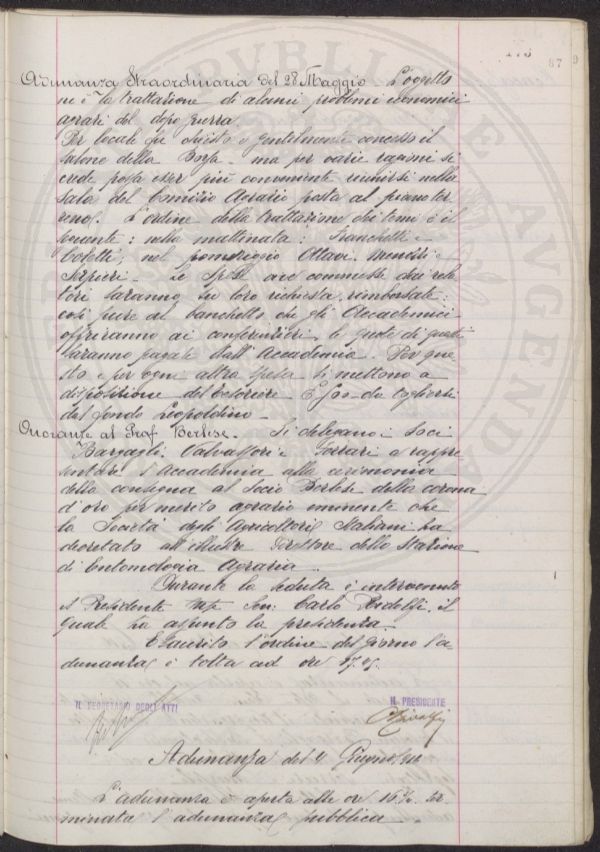 173
87
9
Adunanza Straordinaria del 28 Maggio L'oggetto
ne è la trattazione di alcuni problemi economici
agrari del dopo guerra
Per locale fu chiesto e gentilmente concesso il
salone della Borsa - ma per varie ragioni si
crede possa esser più conveniente riunirsi nella
sala del Comizio Agrario posta al pianoter
reno. L'ordine della trattazione dei temi è il
seguente: nella mattinata: Franchetti e
nel pomeriggio Ottavi. Menditti
Serpieri - Le spese commesse dai rela
tori saranno, su loro richiesta, rimborsate:
così pure del banchetto che gli Accademici
offriranno ai conferenzieri, le quote di questi
saranno pagate dall'Accademia. Per que
sto e per ogni altra spesa si mettono a
disposizione del Tesoriere £ 500 da togliersi
dal fondo Leopoldino -
Onoranze al Prof. Berlese. - Si delegano i Soci
Bargagli, Valvassori e Ferrari a rappre
sentare l'Accademia alla cerimonia
della consegna al Socio Berlese della corona
d'oro per merito agrario eminente che
la Società degli Agricoltori Italiani ha
decretato all'illustre Direttore della Stazione
di Entomologia Agraria.
Durante la seduta è intervenuto
il Presidente Carlo Ridolfi, il
quale ha assunto la presidenza.
Esaurito l'ordine del giorno l'a
dunanza è tolta ad ore 17.45.
IL SEGRETARIO DEGLI ATTI
IL PRESIDENTE
CRidolfi
Adunanza del 4 Giugno
L'adunanza è aperta alle ore 16½ ter
minata l'adunanza pubblica